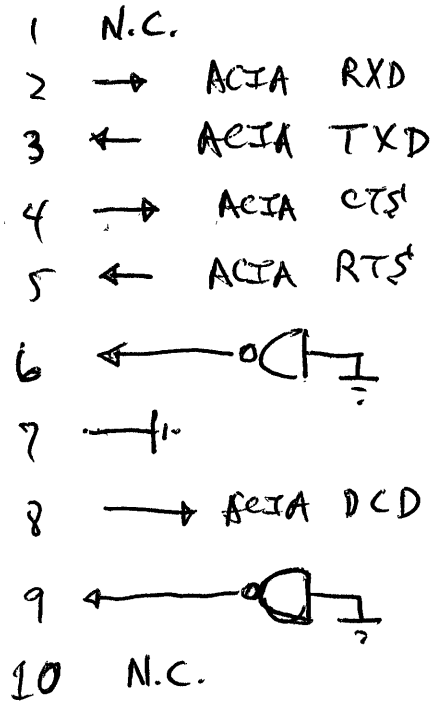 1 N.C.
2 → ACIA RXD
3 ← ACIA TXD
4 → ACIA CTS
5 ← ACIA RTS
6 ←
7
8 → ACIA DCD
9 ←
10 N.C.